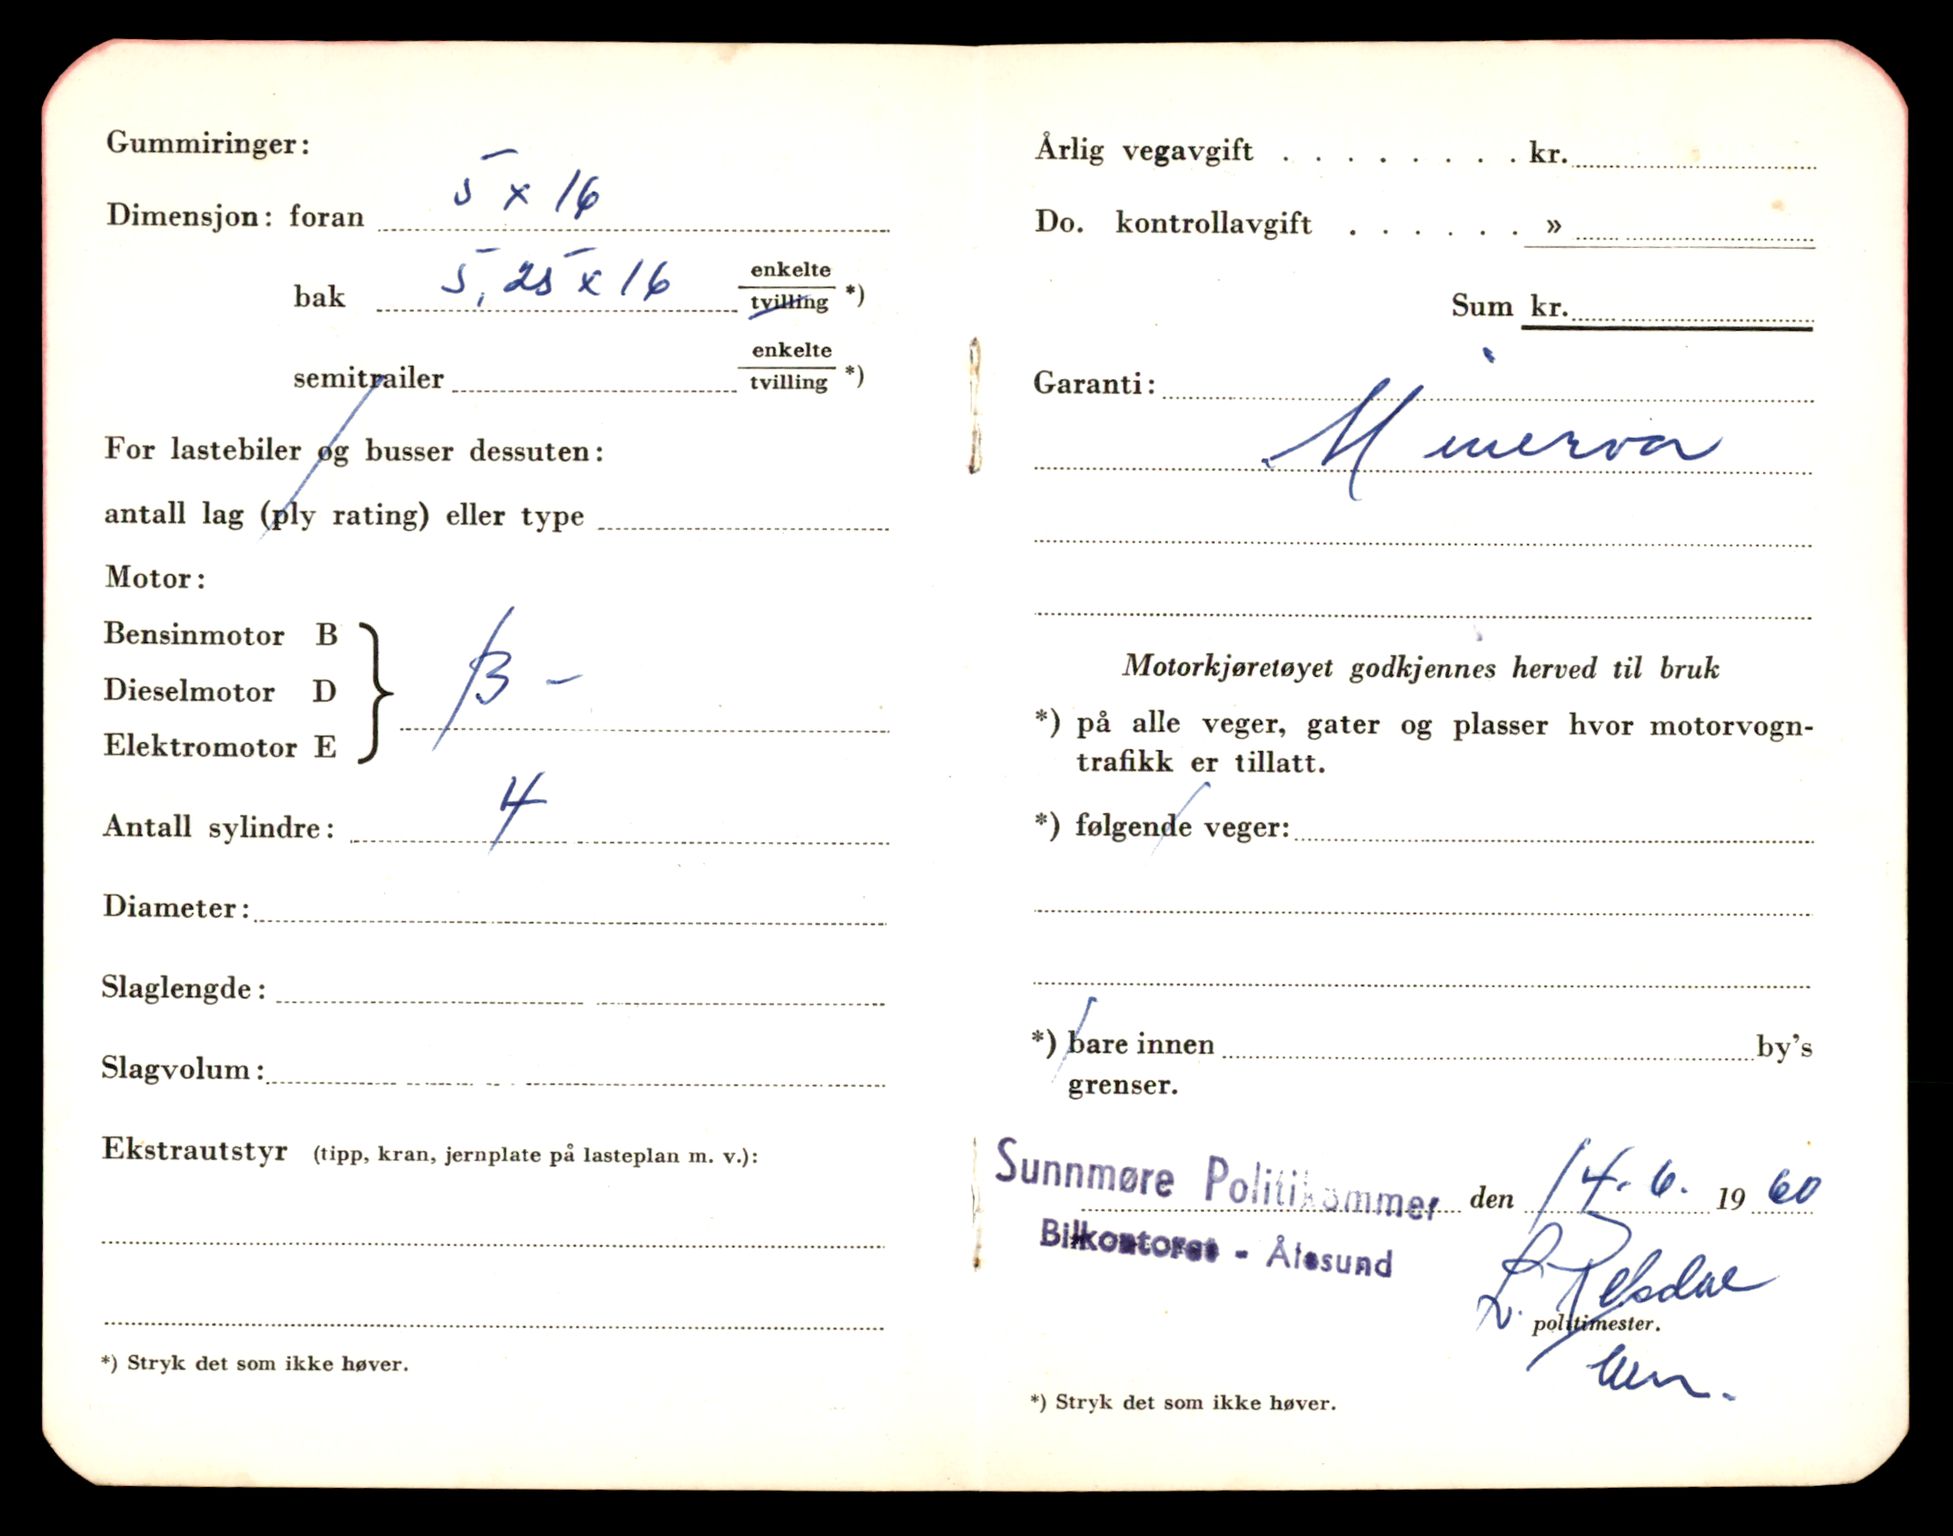 Gummiringer:
Dimensjon: foran 5 x 16
bak 5,25 x 16 enkelte
tvilling *)
semitrailer enkelte
tvilling *)
For lastebiler og busser dessuten:
antall lag (ply rating) eller type
Motor:
Bensinmotor B
Dieselmotor D B -
Elektromotor E
Antall sylindre: 4
Diameter:
Slaglengde:
Slagvolum:
Ekstrautstyr (tipp, kran, jernplate på lasteplan m. v.):
*) Stryk det som ikke høver.
Årlig vegavgift . . . . . . . . kr.
Do. kontrollavgift . . . . . . »
Sum kr.
Garanti:
Minerva
Motorkjøretøyet godkjennes herved til bruk
*) på alle veger, gater og plasser hvor motorvogn-
trafikk er tillatt.
*) følgende veger:
*) bare innen by's
grenser.
Sunnmøre Politikammer den 14.6. 1960
Bilkontoret - Ålesund
L.
politimester.
*) Stryk det som ikke høver.